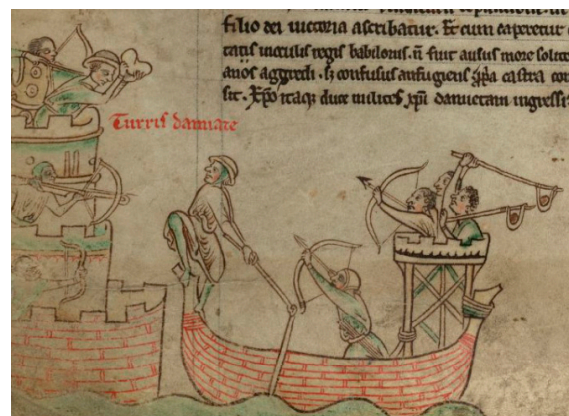 filio dei uictoria ascribatur. Et cum caperetur
tatis inculis regis babilonis. n̄ fuit ausus more solito
anos aggredi. sꝫ confusus aufugiens castra
sit. Xpo itaqꝫ duce milites xpi damietam ingressi
Turris damiate